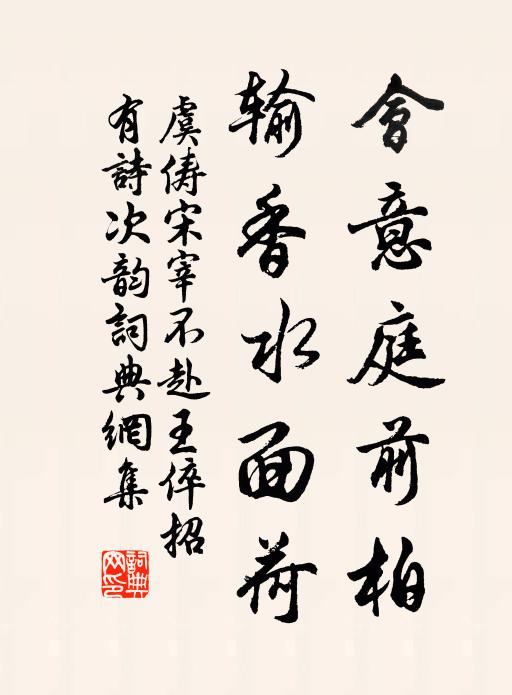 會意庭前柏
輸香水面荷
虞儔宋宰不赴王倅招
有詩次韵詞典網集
詞典網印